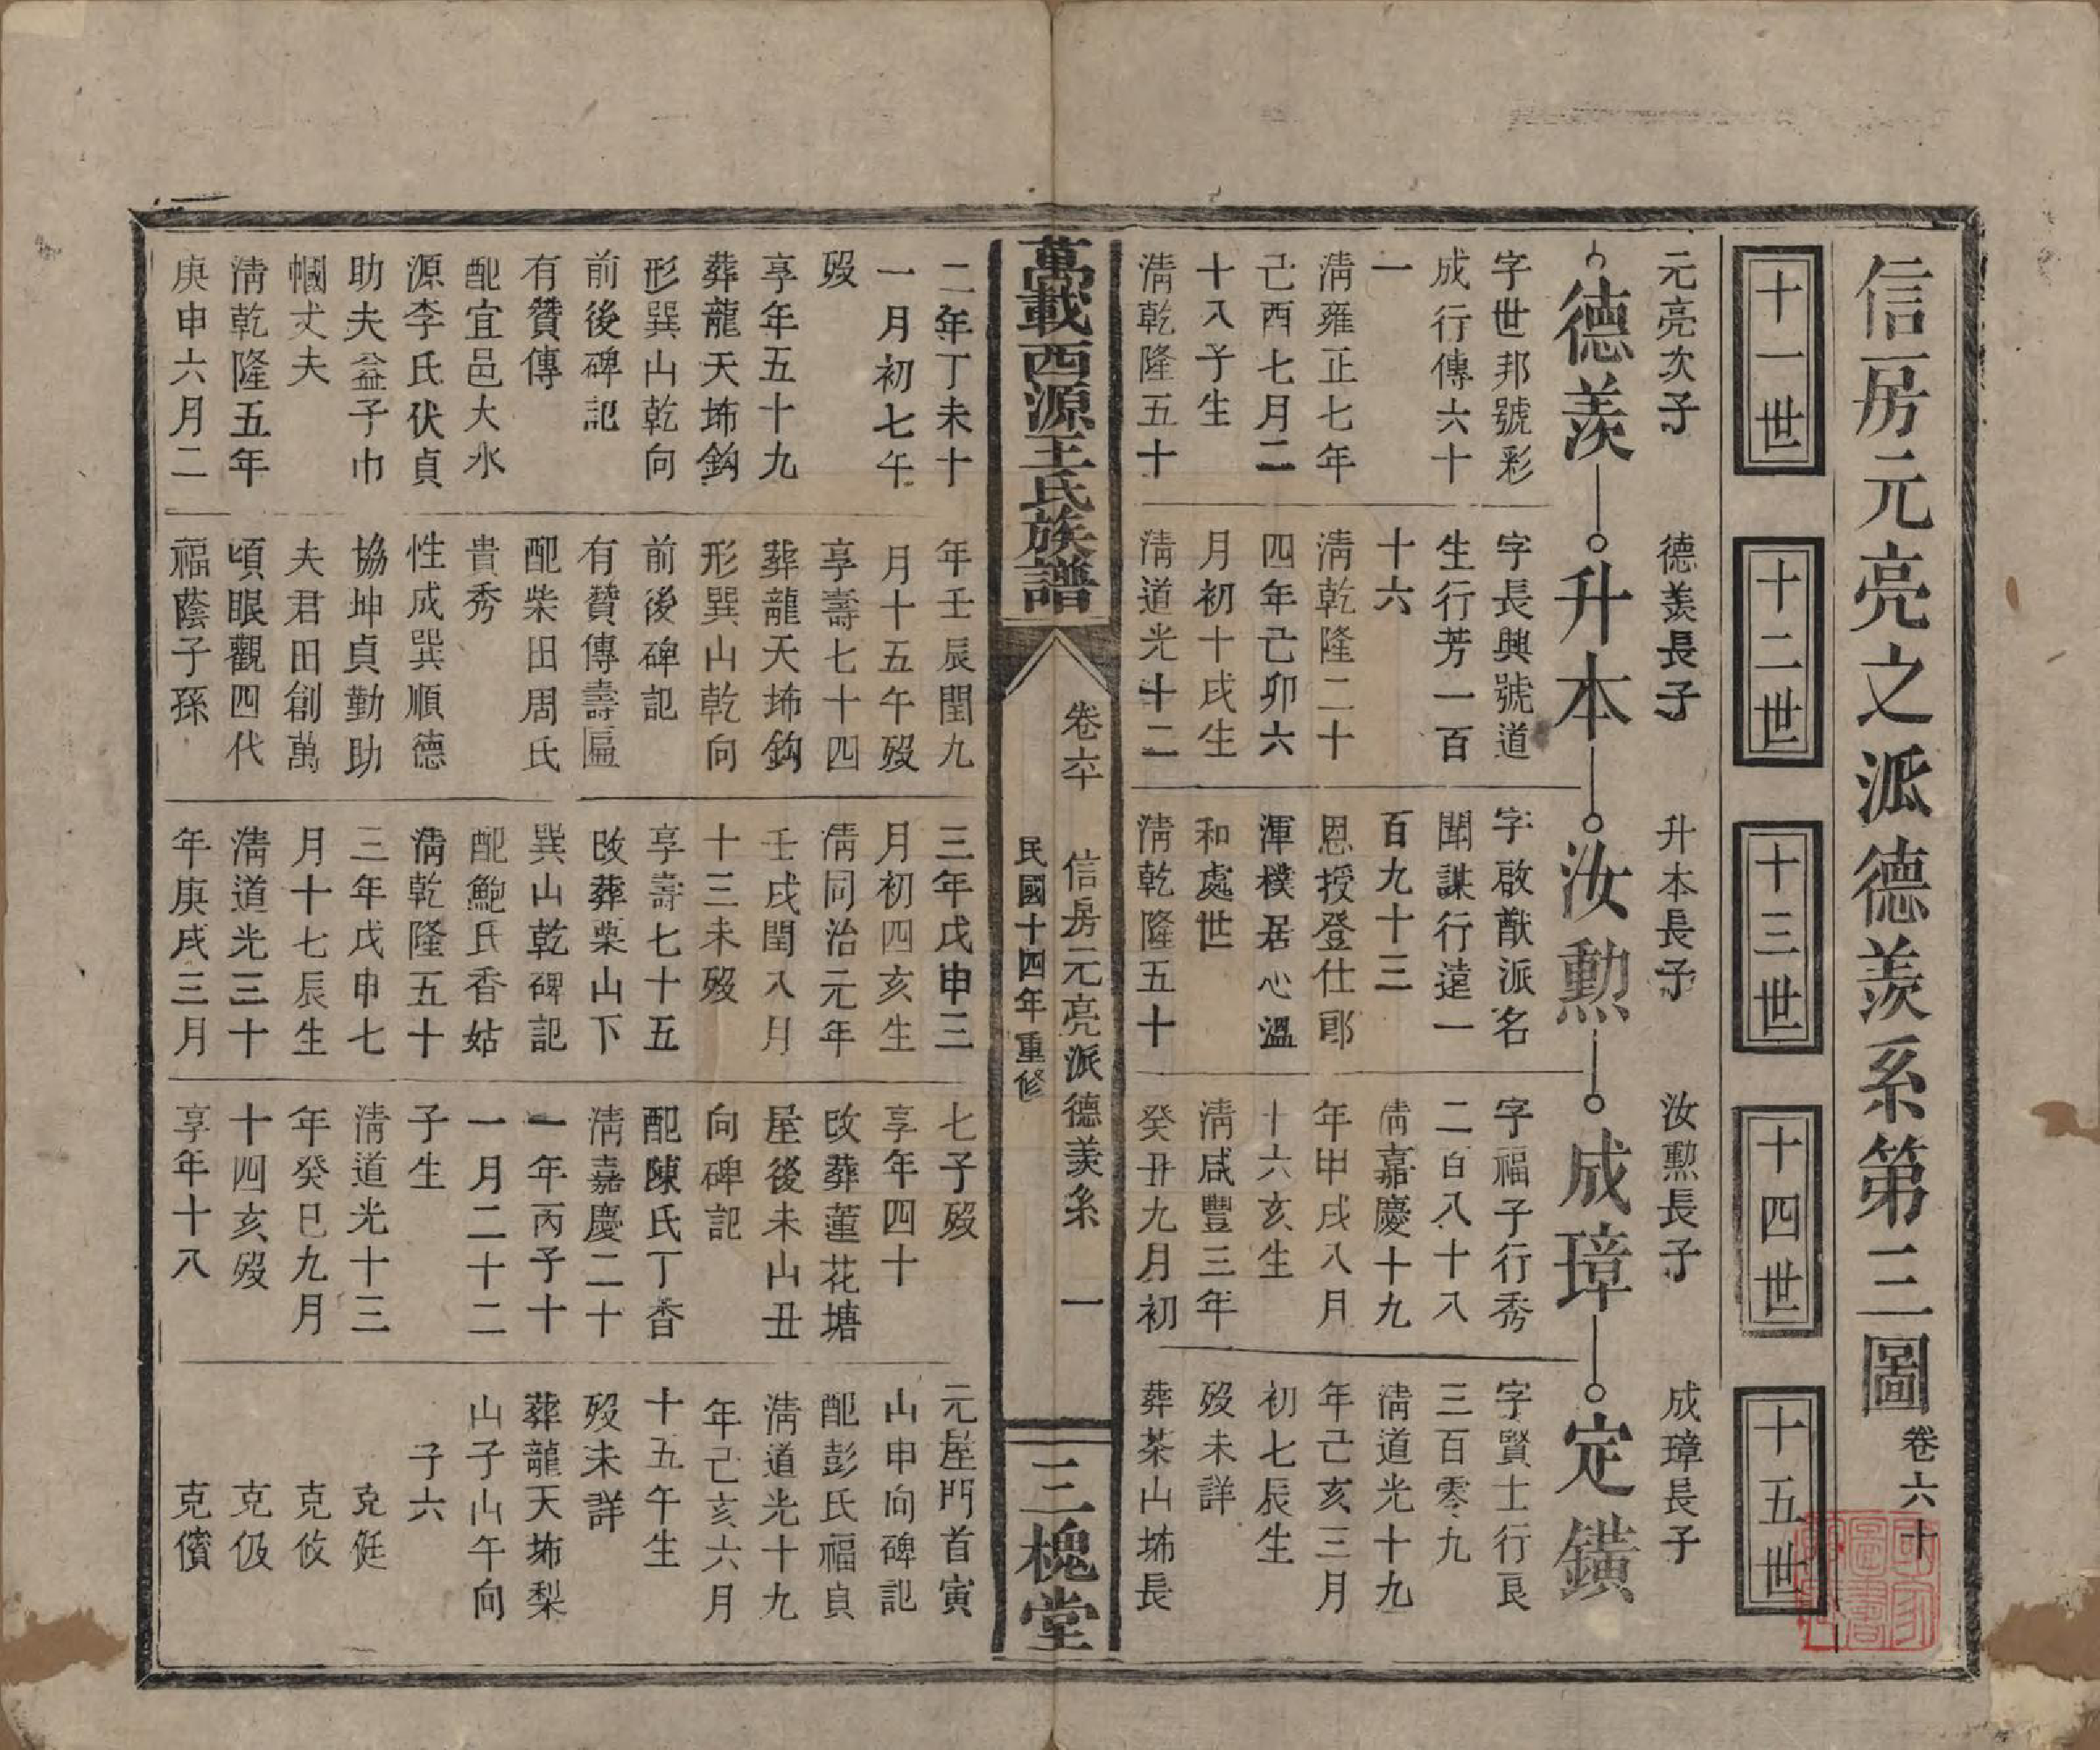 信房元亮之派德羨系第三圖 卷六十
十一世
十二世
十三世
十四世
十五世
元亮次子
德羨
字世邦號彩
成行傳六十
一
淸雍正七年
己酉七月二
十八子生
淸乾隆五十
二年丁未十
一月初七午
歿
享年五十九
葬龍天㘵鈎
形巽山乾向
前後碑記
有贊傳
配宜邑大水
源李氏伏貞
助夫益子巾
幗丈夫
淸乾隆五年
庚申六月二
德羨長子
升本
字長興號道
生行芳一百
十六
淸乾隆二十
四年己卯六
月初十戌生
淸道光十二
年壬辰閏九
月十五午歿
享壽七十四
葬龍天㘵鈎
形巽山乾向
前後碑記
有贊傳壽匾
配柴田周氏
貴秀
性成巽順德
協坤貞勤助
夫君田創萬
頃眼觀四代
福蔭子孫
升本長子
汝勲
字啟猷派名
聞謀行遠一
百九十三
恩授登仕郎
渾樸居心溫
和處世
淸乾隆五十
三年戊申三
月初四亥生
淸同治元年
壬戌閏八月
十三未歿
享壽七十五
改葬栗山下
巽山乾碑記
配鮑氏香姑
淸乾隆五十
三年戊申七
月十七辰生
淸道光三十
年庚戌三月
汝勲長子
成璋
字福子行秀
二百八十八
淸嘉慶十九
年甲戌八月
十六亥生
淸咸豐三年
癸丑九月初
七子歿
享年四十
改葬蓮花塘
屋後未山丑
向碑記
配陳氏丁香
淸嘉慶二十
一年丙子十
一月二十二
子生
淸道光十三
年癸巳九月
十四亥歿
享年十八
成璋長子
定鐄
字賢士行良
三百零九
淸道光十九
年己亥三月
初七辰生
歿未詳
葬茶山㘵長
元屋門首寅
山申向碑記
配彭氏福貞
淸道光十九
年己亥六月
十五午生
歿未詳
葬龍天㘵梨
山子山午向
子六
克侹
克攸
克伋
克儐
萬載西源王氏族譜
卷六十
信房元亮派德羨系 一
民國十四年重修
三槐堂